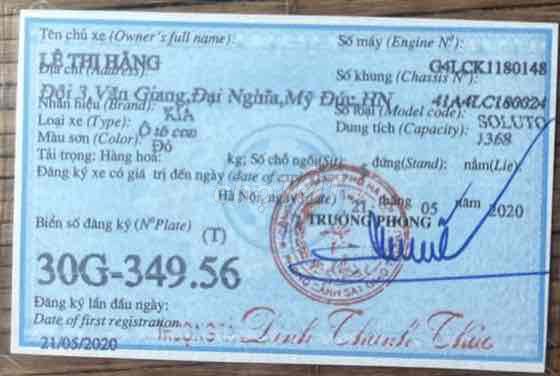 Tên chủ xe (Owner's full name):
LÊ THỊ HẰNG
Số máy (Engine Nº): G4LCK1180148
Địa chỉ (Address):
Số khung (Chassis Nº):
Đội 3,Văn Giang,Đại Nghĩa,Mỹ Đức,HN 41A4LC180024
Nhãn hiệu (Brand): KIA
Số loại (Model code): SOLUTO
Loại xe (Type): Ô tô con
Dung tích (Capacity): 1368
Màu sơn (Color): Đỏ
Tải trọng: Hàng hoá: kg; Số chỗ ngồi(Sit): đứng(Stand): nằm(Lie):
Đăng ký xe có giá trị đến ngày (date of
Hà Nội, ngày (date) 21 tháng 05 năm 2020
Biển số đăng ký (NºPlate) (T)
TRƯỞNG PHÒNG
30G-349.56
Đăng ký lần đầu ngày:
Date of first registration
21/05/2020